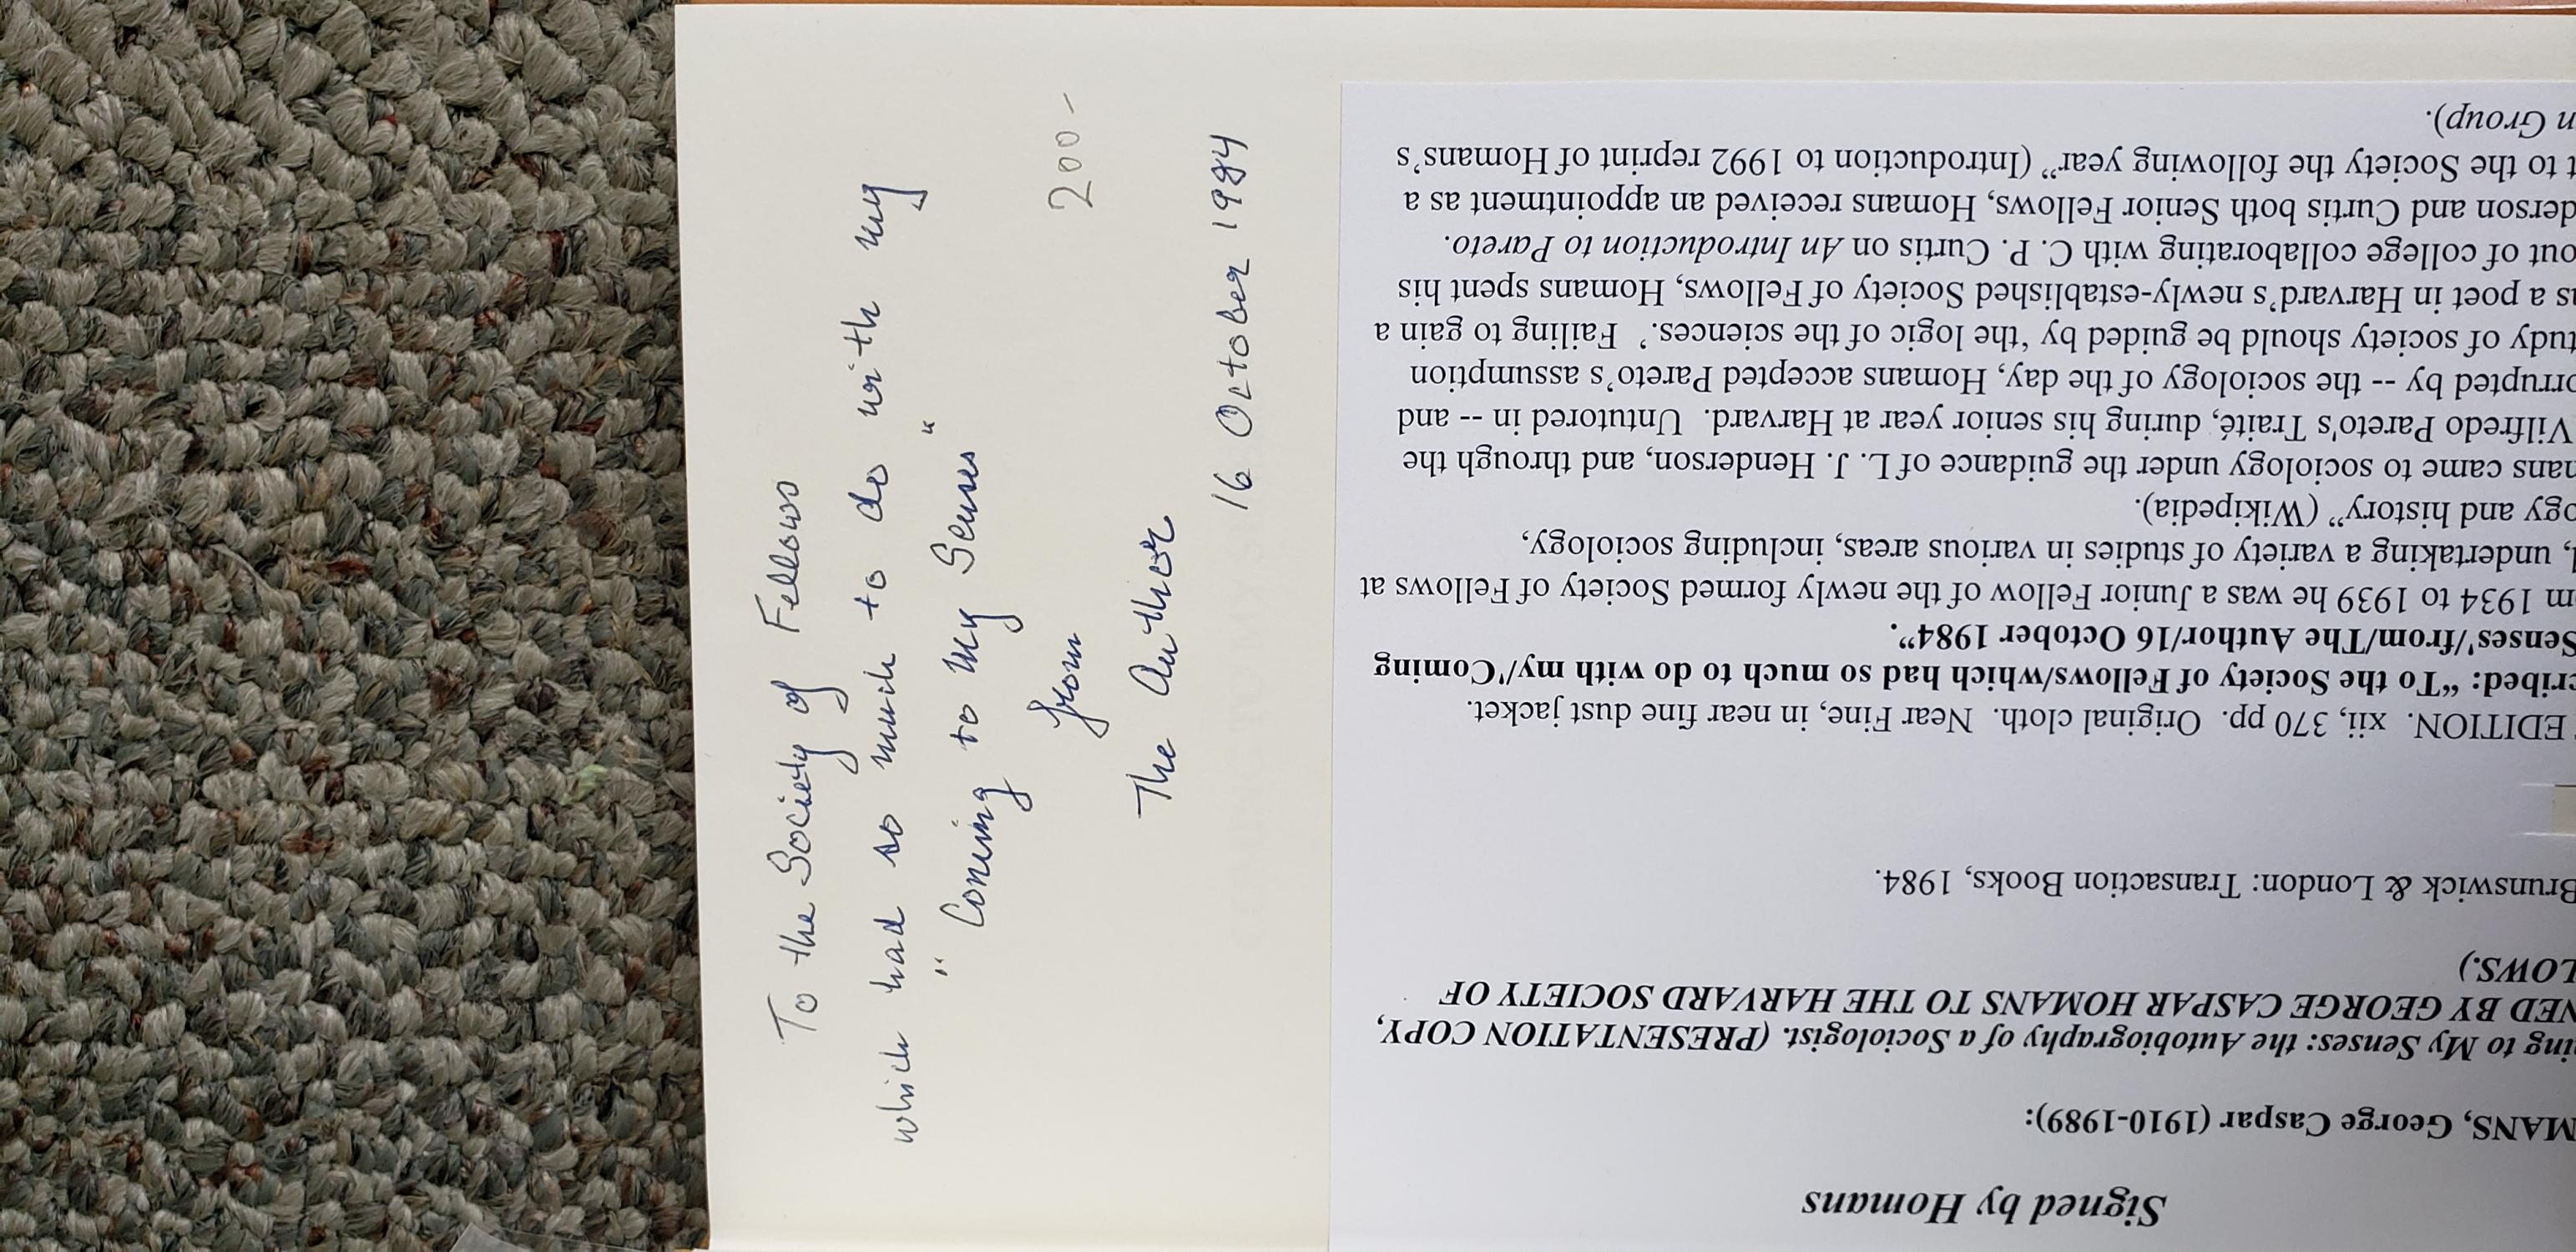 To the Society of Fellows
which had so much to do with my
"Coming to My Senses"
from
The Author
16 October 1984
200-
Signed by Homans
MANS, George Caspar (1910-1989):
ing to My Senses: the Autobiography of a Sociologist. (PRESENTATION COPY,
NED BY GEORGE CASPAR HOMANS TO THE HARVARD SOCIETY OF
LOWS.)
Brunswick & London: Transaction Books, 1984.
EDITION. xii, 370 pp. Original cloth. Near Fine, in near fine dust jacket.
cribed: “To the Society of Fellows/which had so much to do with my/'Coming
Senses'/from/The Author/16 October 1984”.
m 1934 to 1939 he was a Junior Fellow of the newly formed Society of Fellows at
, undertaking a variety of studies in various areas, including sociology,
ogy and history” (Wikipedia).
mans came to sociology under the guidance of L. J. Henderson, and through the
Vilfredo Pareto's Traité, during his senior year at Harvard. Untutored in -- and
orrupted by -- the sociology of the day, Homans accepted Pareto’s assumption
tudy of society should be guided by ‘the logic of the sciences.’ Failing to gain a
as a poet in Harvard’s newly-established Society of Fellows, Homans spent his
out of college collaborating with C. P. Curtis on An Introduction to Pareto.
derson and Curtis both Senior Fellows, Homans received an appointment as a
t to the Society the following year” (Introduction to 1992 reprint of Homans’s
n Group).